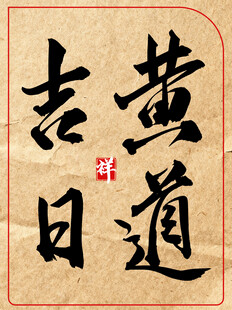 黄道
吉日
祥